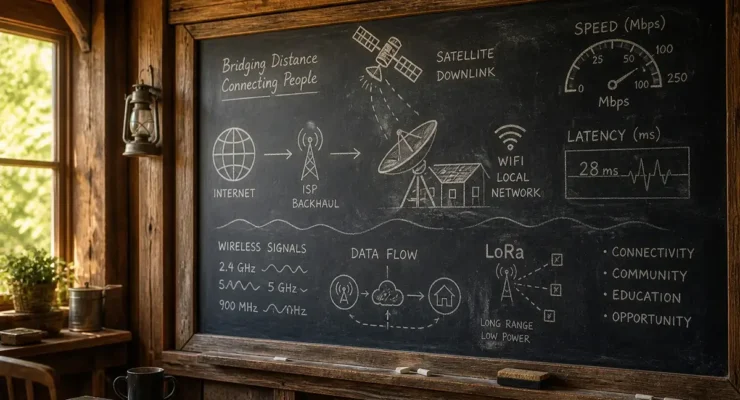 Bridging Distance
Connecting People
SATELLITE
DOWNLINK
SPEED (Mbps)
0
25
50
100
100
250
Mbps
INTERNET
ISP
BACKHAUL
WIFI
LOCAL
NETWORK
LATENCY (ms)
28 ms
WIRELESS SIGNALS
2.4 GHz
5 GHz
900 MHz
DATA FLOW
LoRa
LONG RANGE
LOW POWER
• CONNECTIVITY
• COMMUNITY
• EDUCATION
• OPPORTUNITY